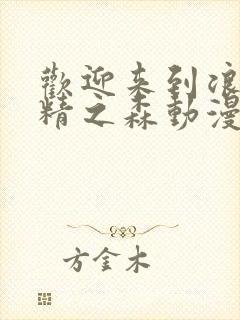 歡迎来到浪
精之森動漫
方金木